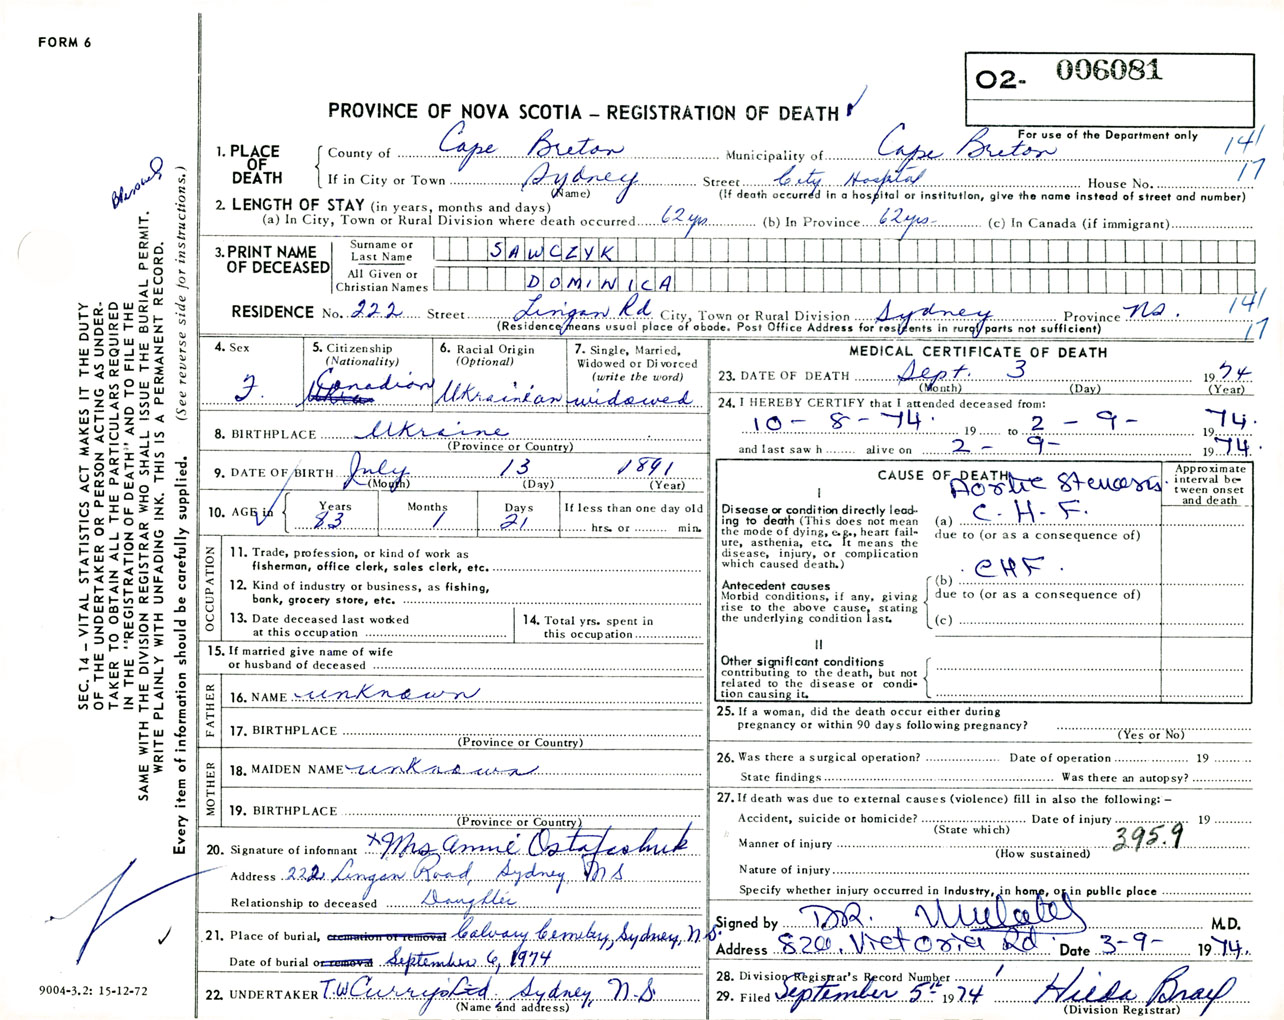 FORM 6
O2- 006081
For use of the Department only
PROVINCE OF NOVA SCOTIA – REGISTRATION OF DEATH
1. PLACE OF DEATH
County of Cape Breton Municipality of Cape Breton 141
If in City or Town Sydney Street City Hospital House No. 17
(Name) (If death occurred in a hospital or institution, give the name instead of street and number)
2. LENGTH OF STAY (in years, months and days)
(a) In City, Town or Rural Division where death occurred 62 yrs (b) In Province 62 yrs- (c) In Canada (if immigrant)
3. PRINT NAME OF DECEASED
Surname or Last Name SAWCZYK
All Given or Christian Names DOMINICA
RESIDENCE No. 222 Street Lingan Rd City, Town or Rural Division Sydney Province NS. 141
(Residence means usual place of abode. Post Office Address for residents in rural parts not sufficient) 17
4. Sex
F.
5. Citizenship
(Nationality)
Canadian
6. Racial Origin
(Optional)
Ukrainian
7. Single, Married, Widowed or Divorced
(write the word)
widowed
8. BIRTHPLACE Ukraine
(Province or Country)
9. DATE OF BIRTH July 13 1891
(Month) (Day) (Year)
10. AGE in
Years Months Days If less than one day old
83 1 21 hrs. or min.
OCCUPATION
11. Trade, profession, or kind of work as
fisherman, office clerk, sales clerk, etc.
12. Kind of industry or business, as fishing,
bank, grocery store, etc.
13. Date deceased last worked
at this occupation
14. Total yrs. spent in
this occupation
15. If married give name of wife
or husband of deceased
FATHER
16. NAME unknown
17. BIRTHPLACE
(Province or Country)
MOTHER
18. MAIDEN NAME unknown
19. BIRTHPLACE
(Province or Country)
20. Signature of informant x Mrs Annie Ostafichuk
Address 222 Lingan Road, Sydney, NS
Relationship to deceased Daughter
21. Place of burial, cremation or removal Calvary Cemetery, Sydney, N.S.
Date of burial or removal September 6, 1974
22. UNDERTAKER T.W Curry's Ltd Sydney, N.S.
(Name and address)
MEDICAL CERTIFICATE OF DEATH
23. DATE OF DEATH Sept. 3 1974
(Month) (Day) (Year)
24. I HEREBY CERTIFY that I attended deceased from:
10-8-74. 19 to 2-9- 19 74.
and last saw h alive on 2-9- 19 74.
CAUSE OF DEATH
Approximate interval between onset and death
I
Aortic Stenosis.
Disease or condition directly leading to death (This does not mean the mode of dying, e.g., heart failure, asthenia, etc. It means the disease, injury, or complication which caused death.)
(a) C.H.F.
due to (or as a consequence of)
Antecedent causes
Morbid conditions, if any, giving rise to the above cause, stating the underlying condition last.
(b) CHF.
due to (or as a consequence of)
(c)
II
Other significant conditions
contributing to the death, but not related to the disease or condition causing it.
25. If a woman, did the death occur either during
pregnancy or within 90 days following pregnancy?
(Yes or No)
26. Was there a surgical operation? Date of operation 19
State findings Was there an autopsy?
27. If death was due to external causes (violence) fill in also the following: –
Accident, suicide or homicide? Date of injury 19
(State which)
Manner of injury 395.9
(How sustained)
Nature of injury
Specify whether injury occurred in Industry, in home, or in public place
Signed by DR. M.D.
Address 820. Victoria Rd. Date 3-9- 1974.
28. Division Registrar's Record Number
29. Filed September 5th 1974 Hilda Bray
(Division Registrar)
SEC. 14 – VITAL STATISTICS ACT MAKES IT THE DUTY
OF THE UNDERTAKER OR PERSON ACTING AS UNDER-
TAKER TO OBTAIN ALL THE PARTICULARS REQUIRED
IN THE "REGISTRATION OF DEATH" AND TO FILE THE
SAME WITH THE DIVISION REGISTRAR WHO SHALL ISSUE THE BURIAL PERMIT.
WRITE PLAINLY WITH UNFADING INK. THIS IS A PERMANENT RECORD.
Every item of information should be carefully supplied. (See reverse side for instructions.)
9004-3.2: 15-12-72